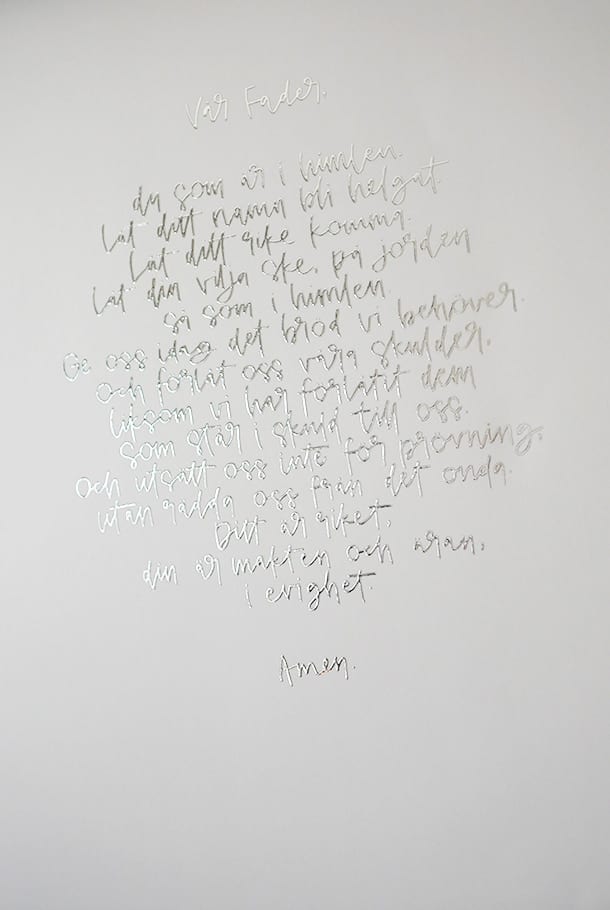 Vår Fader.
du som är i himlen.
Låt ditt namn bli helgat.
Låt ditt rike komma.
Låt din vilja ske, på jorden
så som i himlen.
Ge oss idag det bröd vi behöver.
och förlåt oss våra skulder,
liksom vi har förlåtit dem
som står i skuld till oss.
Och utsätt oss inte för prövning,
utan rädda oss från det onda.
Ditt är riket,
din är makten och äran,
i evighet.
Amen.